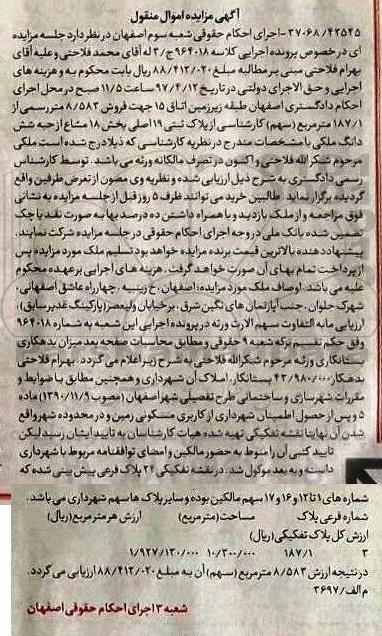 آگهی مزایده اموال منقول
۳۷۰۶۸/۴۲۵۴۵-اجرای احکام حقوقی شعبه سوم اصفهان در نظر دارد جلسه مزایده
ای در خصوص پرونده اجرایی کلاسه ۹۶۴۰۱۸ ج/۳ له آقای محمد فلاحتی و علیه آقای
بهرام فلاحتی مبنی بر مطالبه مبلغ ۸۸/۴۱۲/۰۲۰ ریال بابت محکوم به و هزینه های
اجرایی و حق الاجرای دولتی در تاریخ ۹۷/۴/۱۲ ساعت ۱۱/۵ صبح در محل اجرای
احکام دادگستری اصفهان طبقه زیرزمین اتاق ۱۵ جهت فروش ۸/۵۸۳ متر رسمی از
۱۸۷/۱ مترمربع (سهم) کارشناسی از پلاک ثبتی ۱۹ اصلی بخش ۱۸ مشاع از حبه شش
دانگ ملکی با مشخصات مندرج در نظریه کارشناسی که ذیلا درج شده است ملکی
مرحوم شکرالله فلاحتی و اکنون در تصرف مالکانه ورثه می باشد. توسط کارشناس
رسمی دادگستری به شرح ذیل ارزیابی شده و نظریه وی مصون از تعرض طرفین واقع
گردیده برگزار نماید. طالبین خرید می توانند ظرف ۵ روز قبل از جلسه مزایده به نشانی
فوق مراجعه و از ملک بازدید و با همراه داشتن ده درصد بها به صورت نقد یا چک
تضمین شده بانک ملی در وجه اجرای احکام حقوقی در جلسه مزایده شرکت نمایند.
پیشنهاد دهنده بالاترین قیمت برنده مزایده خواهد بود تسلیم ملک مورد مزایده پس
از پرداخت تمام بهای آن صورت خواهد گرفت. هزینه های اجرایی بر عهده محکوم
علیه می باشد. اوصاف ملک مورد مزایده: اصفهان، خ زینبیه . چهارراه عاشق اصفهانی،
شهرک حلوان. جنب آپارتمان های نگین شرق . بر خیابان ولیعصر (پارکینگ غدیر سابق)،
ارزیابی مابه التفاوت سهم الارث ورثه در پرونده اجرایی این شعبه به شماره ۹۶۴۰۱۸
وفق حکم تقسیم ترکه شعبه ۹ حقوقی و مطابق محاسبات صفحه بعد میزان بدهکاری
بستانکاری ورثه مرحوم شکرالله فلاحتی به شرح زیر اعلام می گردد. بهرام فلاحتی
بدهکار ۴۳/۹۸۰/۰۰۰ بستانکار. املاک آن شهرداری و همچنین مطابق با ضوابط و
مقررات شهرسازی و ساختمانی طرح تفصیلی شهر اصفهان (مصوب ۱۳۹۰/۱۱/۹) ماده
۵ و پس از حصول اطمینان شهرداری از کاربری مسکونی زمین و در محدوده شهر واقع
شدن آن نهایتا نقشه تفکیکی تهیه شده هیات کارشناسان به تایید ایشان رسید لیکن
تایید کتبی آن را منوط به حضور مالکین و امضای توافقنامه مربوط با شهرداری
دانسته و به بعد موکول شد. در نقشه تفکیکی ۲۴ پلاک فرعی پیش بینی شده که
شماره های ۱ تا ۱۲ و ۱۶ و ۱۷ سهم مالکین بوده و سایر پلاک ها سهم شهرداری می باشد.
شماره فرعی پلاک مساحت (مترمربع) ارزش هر مترمربع (ریال)
ارزش کل پلاک تفکیکی (ریال)
۳ ۱۸۷/۱ ۱۰/۳۰۰/۰۰۰ ۱/۹۲۷/۱۳۰/۰۰۰
در نتیجه ارزش ۸/۵۸۳ مترمربع (سهم) آن به مبلغ ۸۸/۴۱۲/۰۲۰ ارزیابی می گردد.
م الف/۳۶۹۷
شعبه ۳ اجرای احکام حقوقی اصفهان